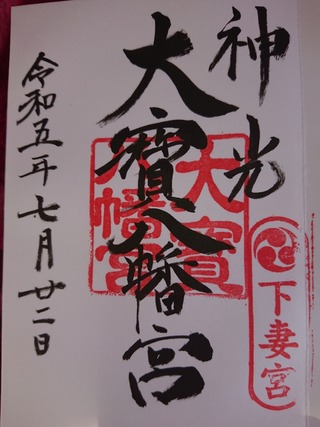 神光
大寳八幡宮
令和五年七月廿二日
大寳
八幡宮
下妻宮